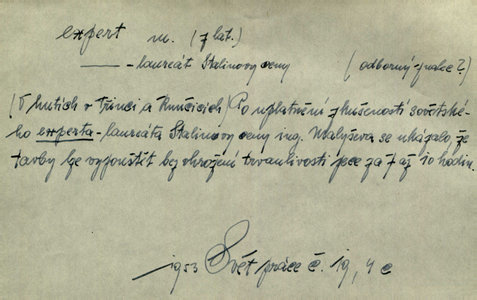 expert m. (z lat.)
—— - laureát Stalinovy ceny (odborný znalec?)
(V hutích v Třinci a Kunčicích) Po uplatnění zkušeností sovětské-
ho experta - laureáta Stalinovy ceny ing. Malyševa se ukázalo, že
tavby lze vypouštět bez ohrožení trvanlivosti pece za 7 až 10 hodin.
1953 Svět práce č. 19, 4 c